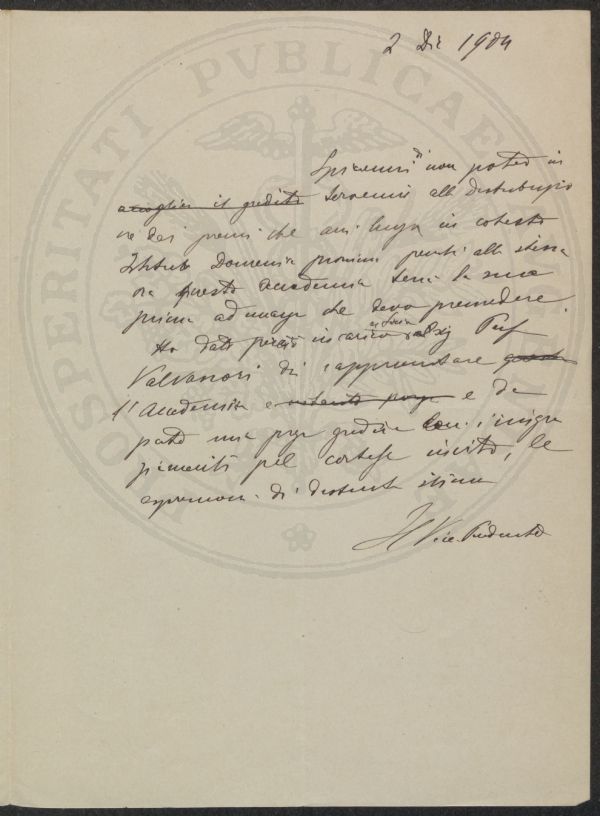 PROSPERITATI PVBLICAE
2 Dic 1904
Spiacemi di non poter in
accogliere il gradito intervenire alla distribuzio
ne dei premi che avrà luogo in cotesto
Istituto Domenica prossima perché alla stessa
ora questa Accademia terrà la sua
prima adunanza che devo presiedere.
Ho dato perciò incarico al Sig Prof
Valvassori di rappresentare
l'Accademia e e da
parte mia prego gradire con i ringra
ziamenti pel cortese invito, le
espressioni di distinta stima
Il Vice-Presidente